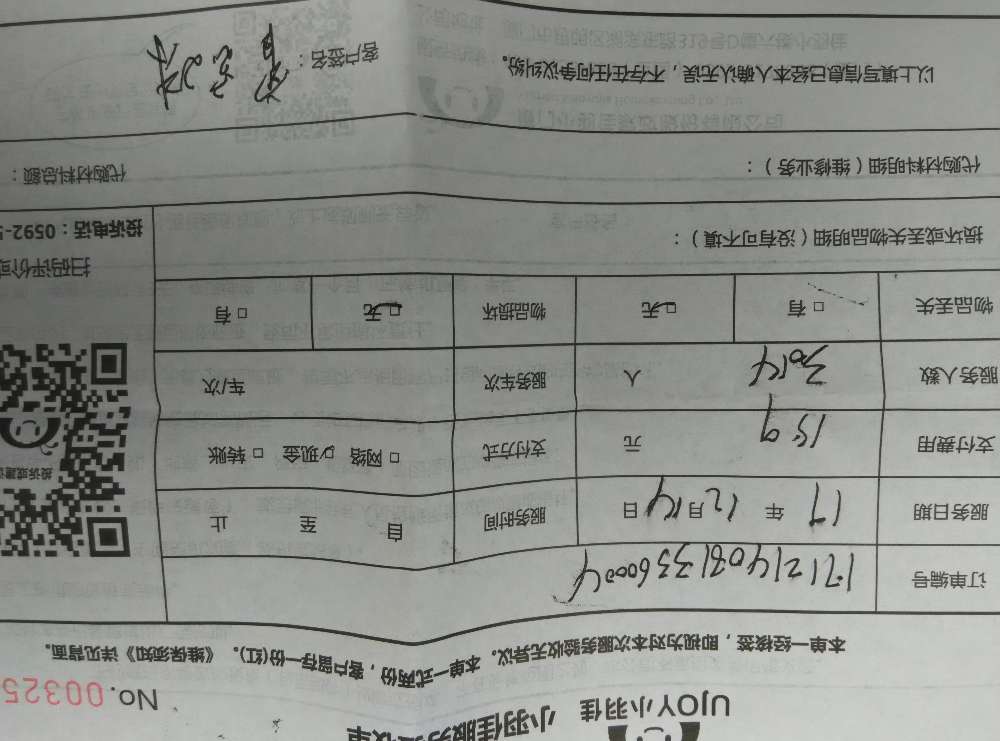 UJOY小羽佳 小羽佳服务
No. 00325
本单一经核签，即视为对本次服务验收无异议。本单一式两份，客户留存一份(红)。《维保须知》详见背面。
订单编号 171214081336004
服务日期 17 年 12 月 14 日 服务时间 自 至 止
支付费用 159 元 支付方式 □ 网络 □ 现金 □ 转账
服务人数 人 服务车次 车/次
物品丢失 □ 有 □ 无 物品损坏 □ 无 □ 有
损坏或丢失物品明细（没有可不填）：
投诉电话：0592-
扫码评价或
投诉或建议
代购材料明细（维修业务）： 代购材料总额：
以上填写信息已经本人确认无误，不存在任何争议纠纷。 客户签名：